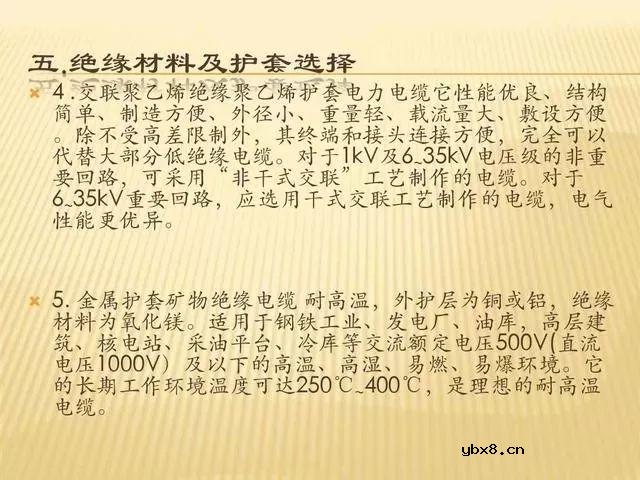 五.绝缘材料及护套选择
4.交联聚乙烯绝缘聚乙烯护套电力电缆它性能优良、结构
简单、制造方便、外径小、重量轻、载流量大、敷设方便
。除不受高差限制外，其终端和接头连接方便，完全可以
代替大部分低绝缘电缆。对于1kV及6~35kV电压级的非重
要回路，可采用“非干式交联”工艺制作的电缆。对于
6~35kV重要回路，应选用干式交联工艺制作的电缆，电气
性能更优异。
5. 金属护套矿物绝缘电缆 耐高温，外护层为铜或铝，绝缘
材料为氧化镁。适用于钢铁工业、发电厂、油库，高层建
筑、核电站、采油平台、冷库等交流额定电压500V(直流
电压1000V）及以下的高温、高湿、易燃、易爆环境。它
的长期工作环境温度可达250℃~400℃，是理想的耐高温
电缆。
ybx8.cn